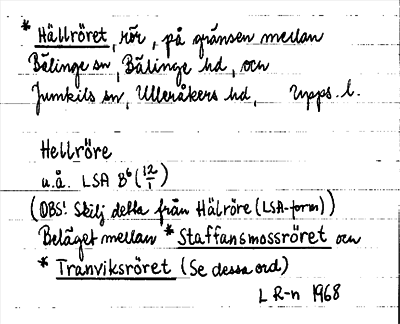 * Hällröret, rör, på gränsen mellan
Bälinge sn, Bälinge hd, och
Jumkils sn, Ulleråkers hd, Upps. l.
Hellröre
u.å. LSA B⁶ (12/1)
(OBS! Skilj detta från Hälröre (LSA-form))
Beläget mellan * Staffansmossröret och
* Tranviksröret (Se dessa ord)
L R-n 1968